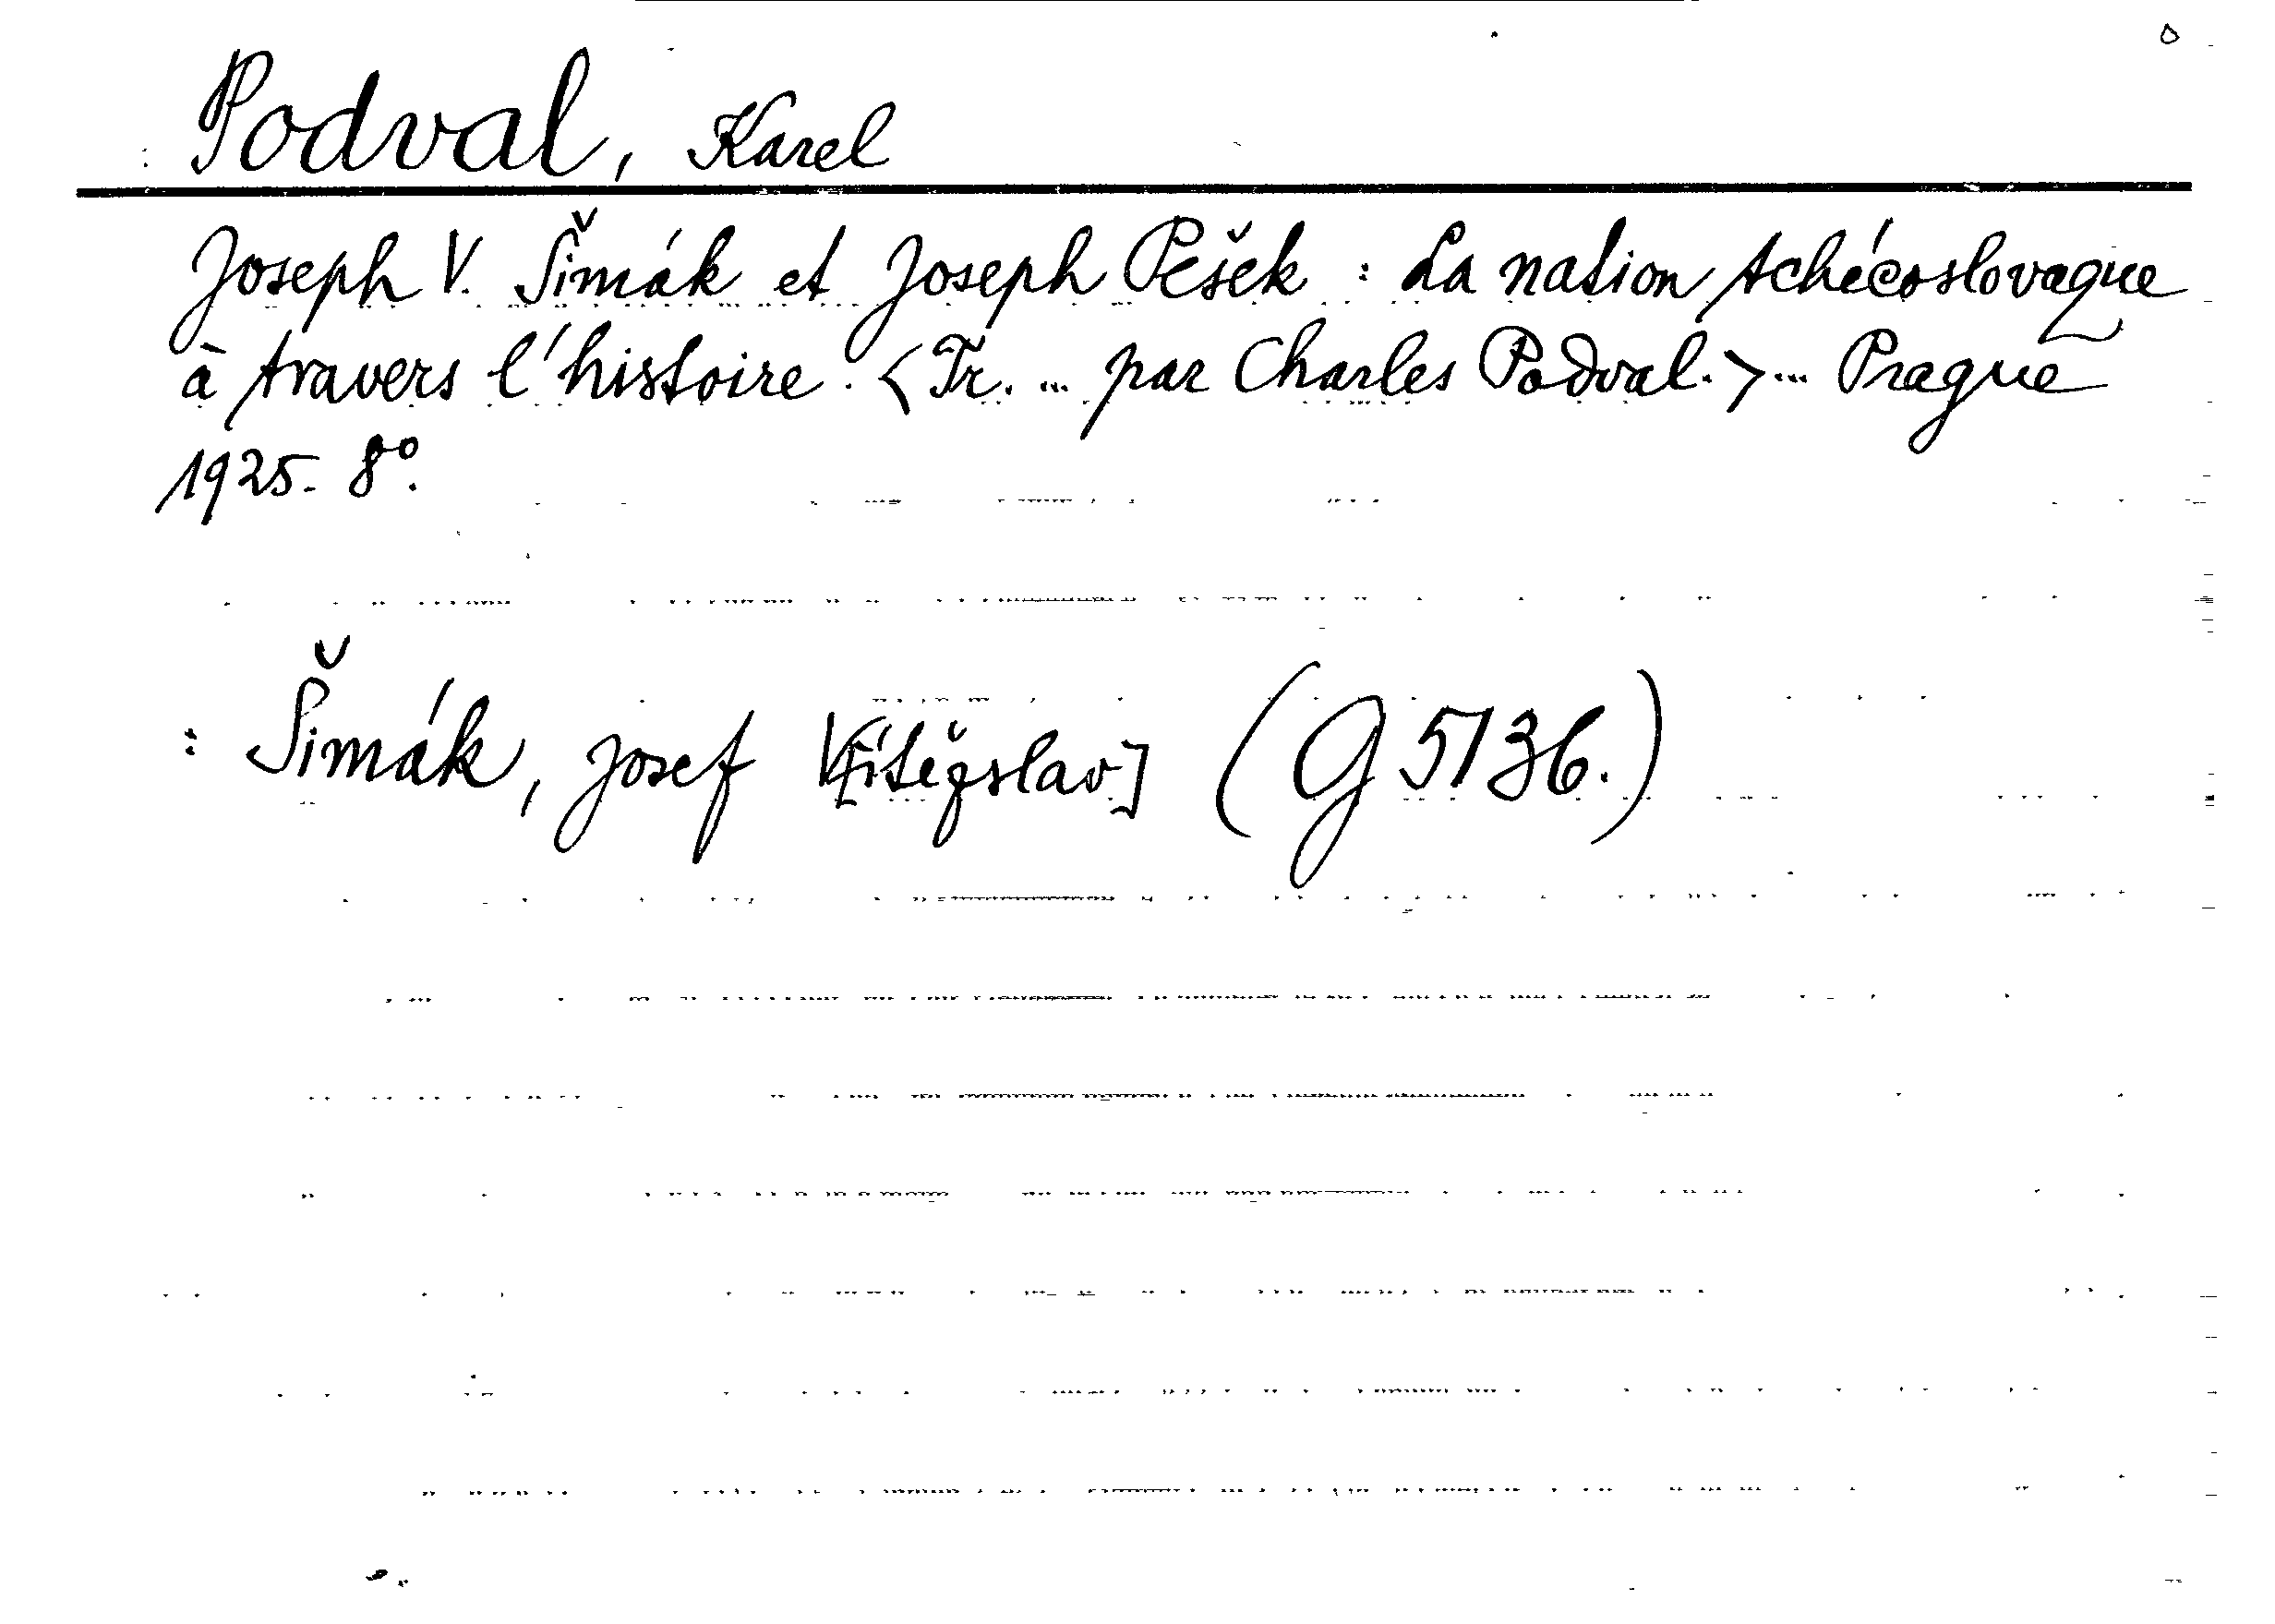 Podval, Karel
Joseph V. Šimák et Joseph Pešek : La nation tchécoslovaque
à travers l'histoire. <Tr. ... par Charles Podval.> ... Prague
1925. 8°.
: Šimák, Josef V[ítězslav] (G 5136.)